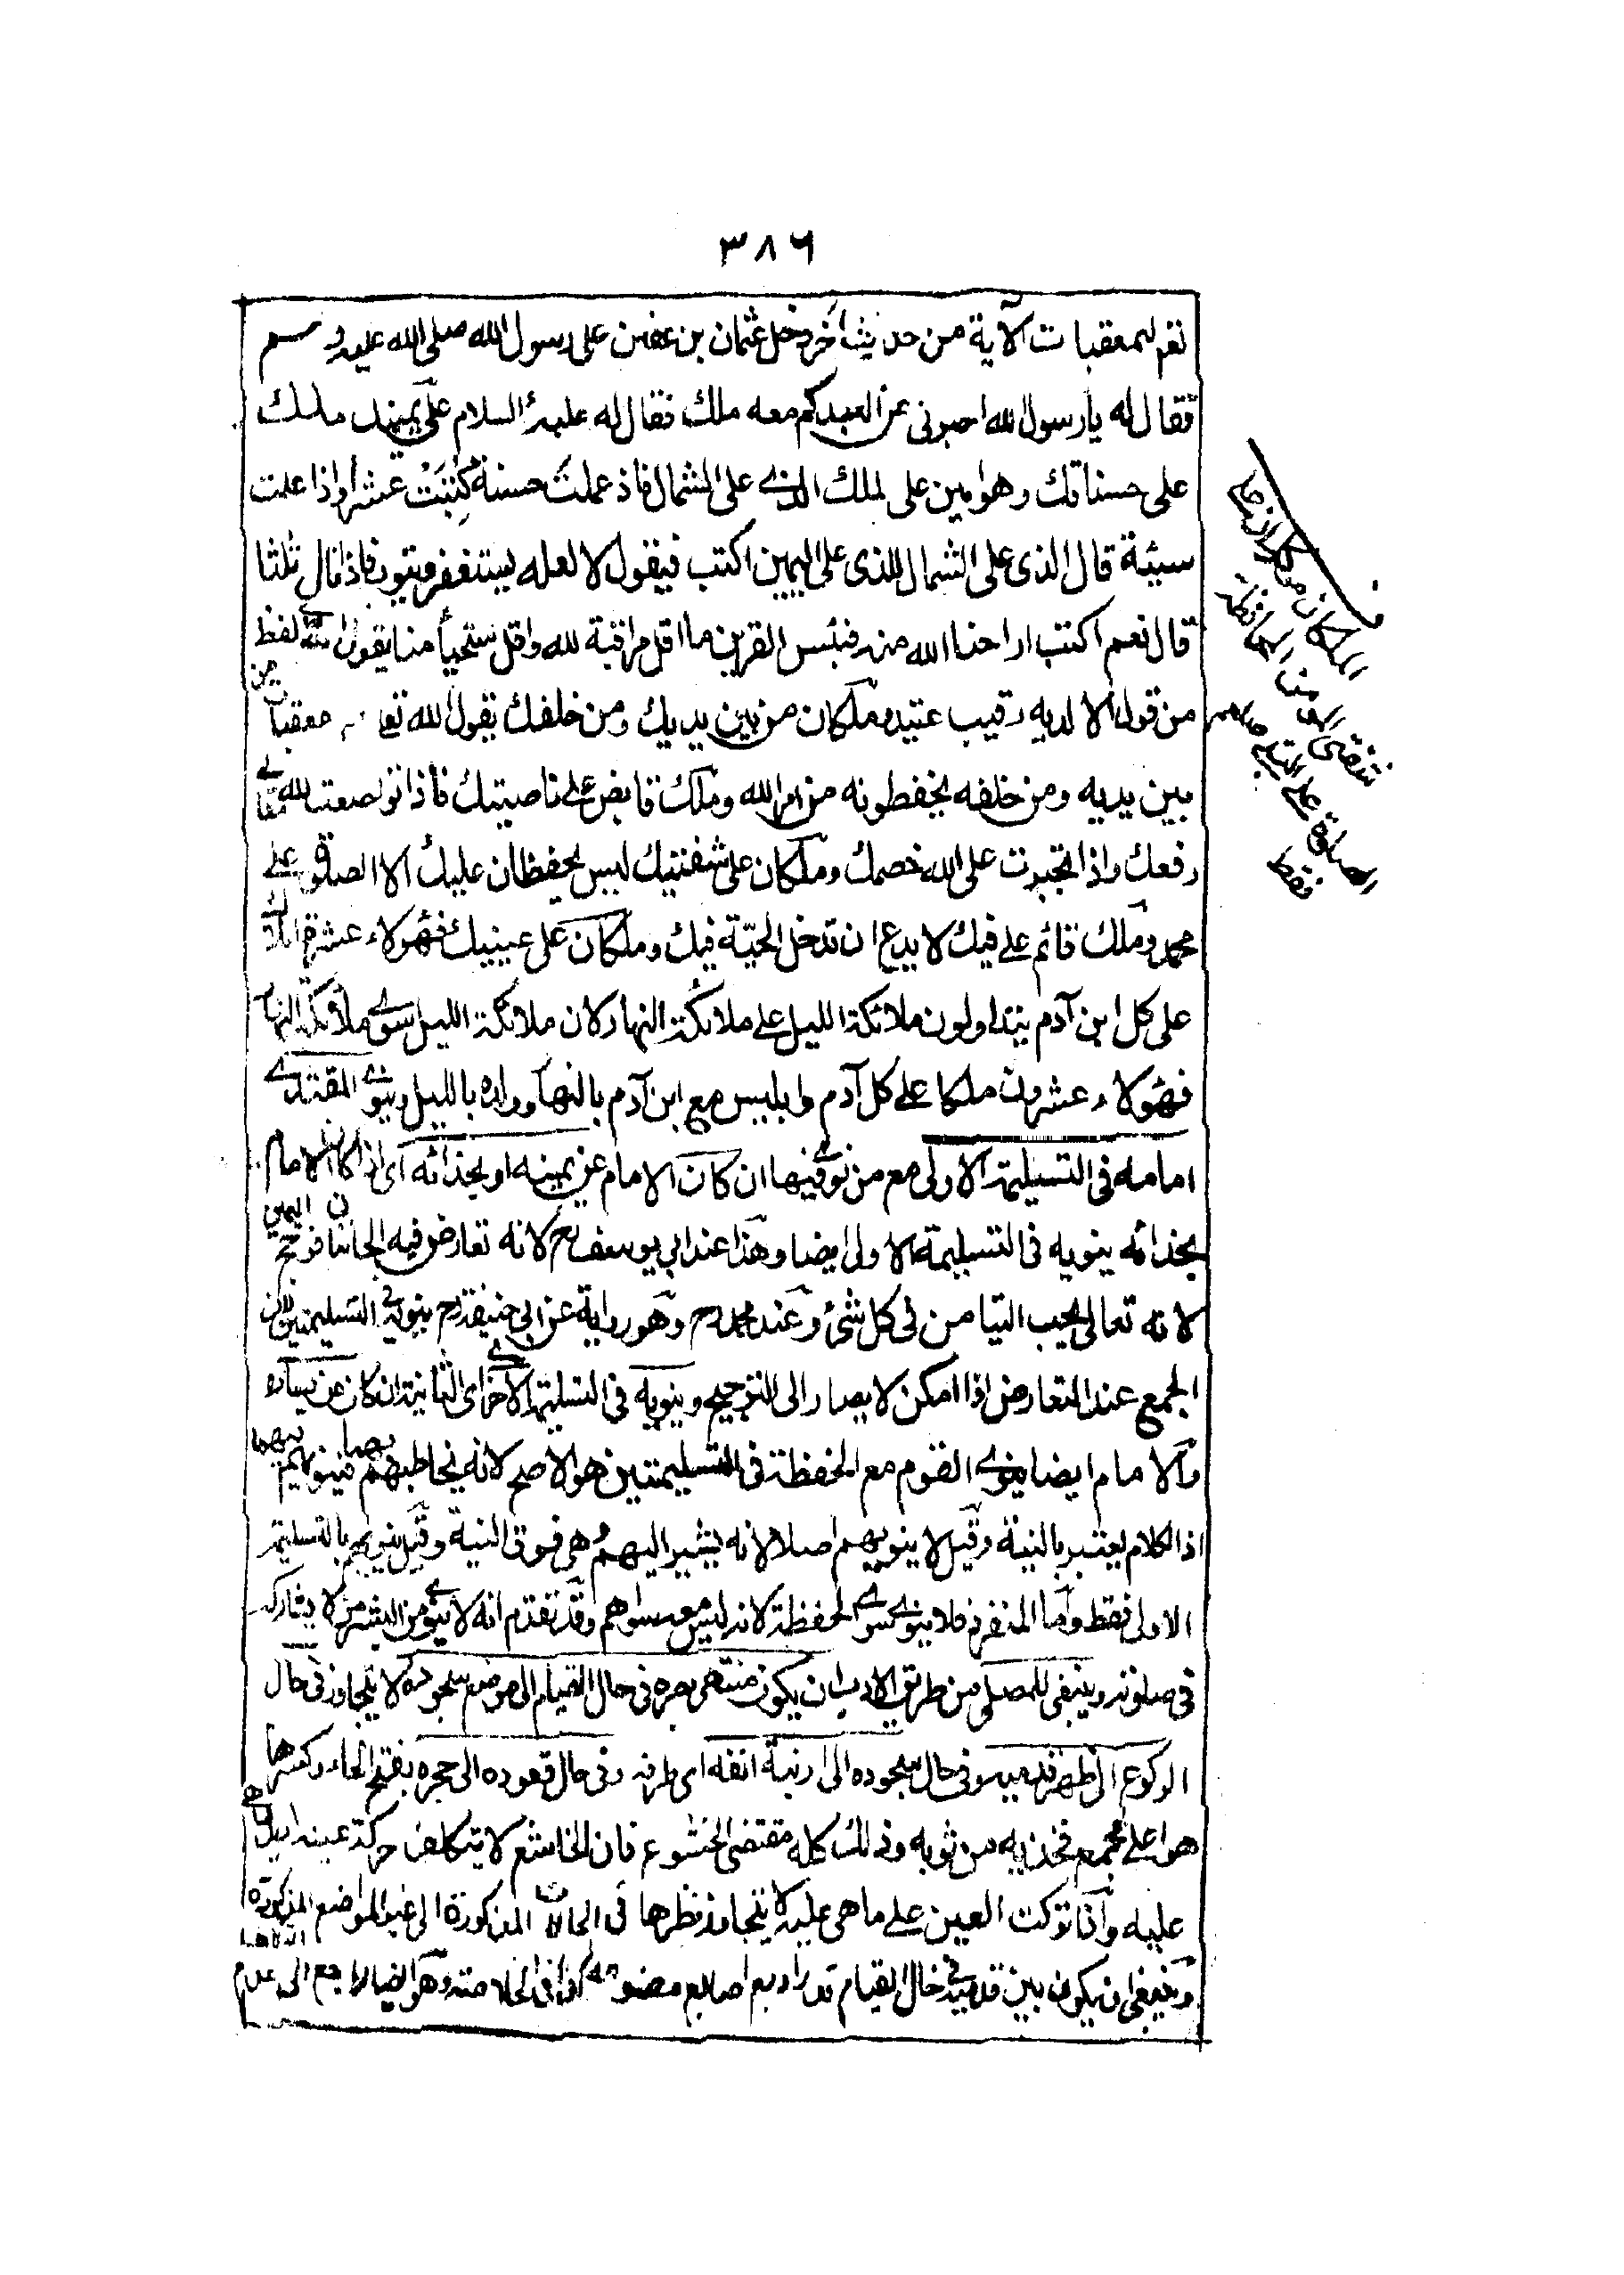 ٣٨٦
له معقبات الآية من حديث آخر دخل عثمان بن عفان على رسول الله صلى الله عليه وسلم
فقال له يا رسول الله اخبرني عن العبد كم معه ملك فقال له عليه السلام على يمينك ملك
على حسناتك وهو امين على الملك الذي على الشمال فاذ عملت حسنة كتبت عشرا واذا عملت
سيئة قال الذي على الشمال للذي على اليمين اكتب فيقول لا لعله يستغفر ويتوب فاذا قال ثلثا
قال نعم اكتب اراحنا الله منه فبئس القرين ما اقل مراقبة لله واقل ستحياً منا يقول الله لفظ
من قول الا لديه رقيب عتيد وملكان من بين يديك ومن خلفك يقول الله تع له معقبات من
بين يديه ومن خلفه يحفظونه من امر الله وملك قابض على ناصيتك فاذا تواضعت لله تعالى
رفعك واذا تجبرت على الله خصمك وملكان على شفتيك ليس يحفظان عليك الا الصلوة على
محمد وملك قائم على فيك لا يدع ان تدخل الحية فيك وملكان على عينيك فهولاء عشرة املاك
على كل ابن آدم يتداولون ملائكة الليل على ملائكة النهار لان ملائكة الليل سوى ملائكة النهار
فهولاء عشرون ملكا على كل آدم وابليس مع ابن آدم بالنهار وولده بالليل وينوي المقتدي
امامه في التسليمة الاولى مع من نوى فيها ان كان الامام عن يمينه او بحذائه اى اذا كان الامام
بحذائه ينويه في التسليمة الاولى ايضا وهذا عند ابي يوسف رح لانه تعارض فيه الجانبان فرجح اليمين
لانه تعالى يحب التيامن في كل شئ وعند محمد رح وهو رواية عن ابي حنيفة رح ينويه في التسليمتين لان
الجمع عند التعارض اذا امكن لا يصار الى الترجيح وينويه في التسليمة الاخرى اى الثانية ان كان عن يساره
والامام ايضا ينوي القوم مع الحفظة في التسليمتين هو الاصح لانه يخاطبهم بهما فينويهم بهما
اذ الكلام يعتبر بالنية وقيل لا ينويهم اصلا لانه يشير اليهم وهي فوق النية وقيل ينويهم بالتسليمة
الاولى فقط واما المنفرد فلا ينوي سوى الحفظة لانه ليس معه سواهم وقد تقدم انه لا ينوي من البشر من لا يشاركه
في صلوته وينبغي للمصلي من طريق الادب ان يكون منتهى بصره في حال القيام الى موضع سجوده لا يتجاوز في حال
الركوع الى ظهر قدميه وفي حال سجوده الى ارنبة انفه اى طرفه وفي حال قعوده الى حجره بفتح الحاء وكسرها
هو اعلى مجمع فخذيه من ثوبه وذلك كله مقتضى الخشوع فان الخاشع لا يتكلف حركة عينه
عليه واذا تركت العين على ما هي عليه لا يتجاوز نظرها في الحالات المذكورة الى غير المواضع المذكورة
وينبغي ان يكون بين قدميه في حال القيام قدر اربع اصابع مضمومة كذا في الخلاصة وهو ايضا راجع الى عدم
الصلوة على
فقط